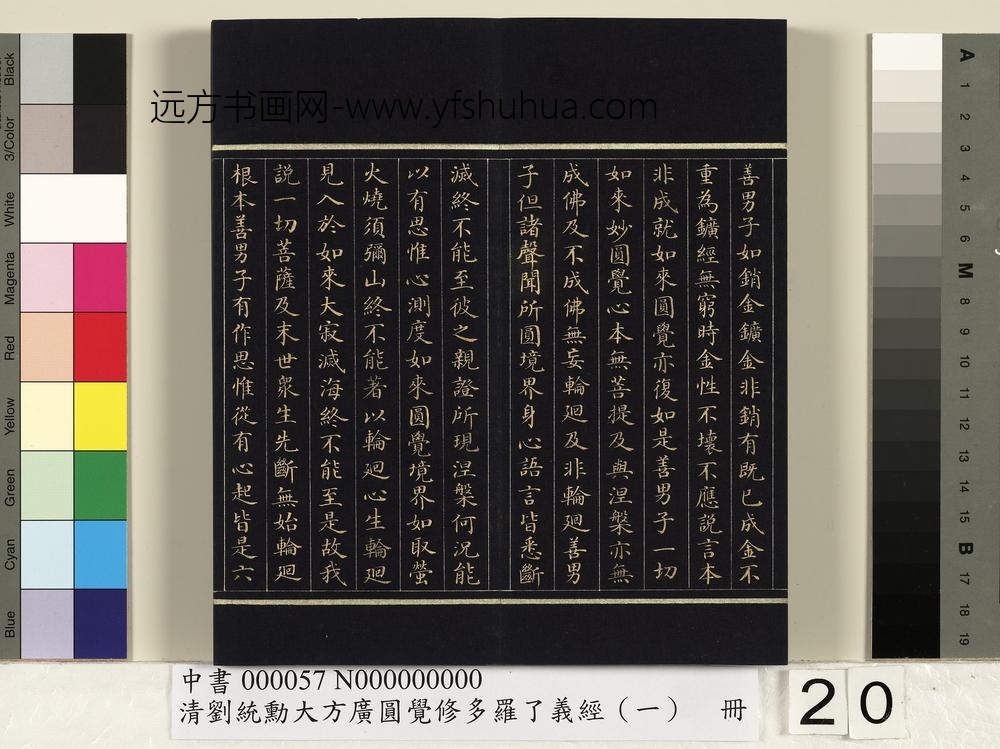 远方书画网-www.yfshuhua.com
善男子如銷金鑛金非銷有既已成金不
重為鑛經無窮時金性不壞不應説言本
非成就如來圓覺亦復如是善男子一切
如來妙圓覺心本無菩提及與涅槃亦無
成佛及不成佛無妄輪廻及非輪廻善男
子但諸聲聞所圓境界身心語言皆悉斷
滅終不能至彼之親證所現涅槃何況能
以有思惟心測度如來圓覺境界如取螢
火燒須彌山終不能著以輪廻心生輪廻
見入於如來大寂滅海終不能至是故我
説一切菩薩及末世衆生先斷無始輪廻
根本善男子有作思惟從有心起皆是六
Black
3/Color
White
Magenta
Red
Yellow
Green
Cyan
Blue
A
1
2
3
4
5
6
M
8
9
10
11
12
13
14
15
B
17
18
19
中書 000057 N000000000
清劉統勳大方廣圓覺修多羅了義經（一） 冊
20